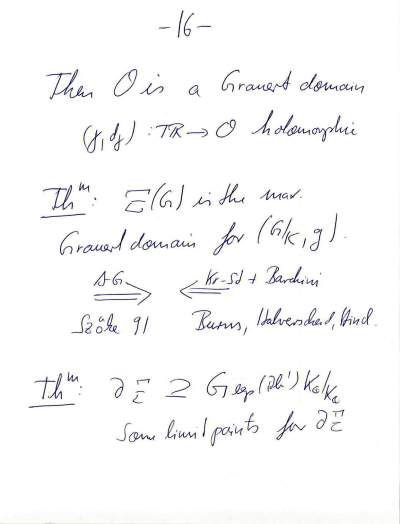 -16-
Then O is a Grauert domain
(γ, dγ) : TR → O holomorphic
Thm: Ξ(G) is the max.
Grauert domain for (G/K, g).
A-G ⟹ ⟸ Kr-St + Barchini
Szőke 91 Burns, Halverscheid, Hind.
Thm: ∂Ξ ⊇ G exp(∂Ω) K_C/K_C
Some limit points for ∂Ξ